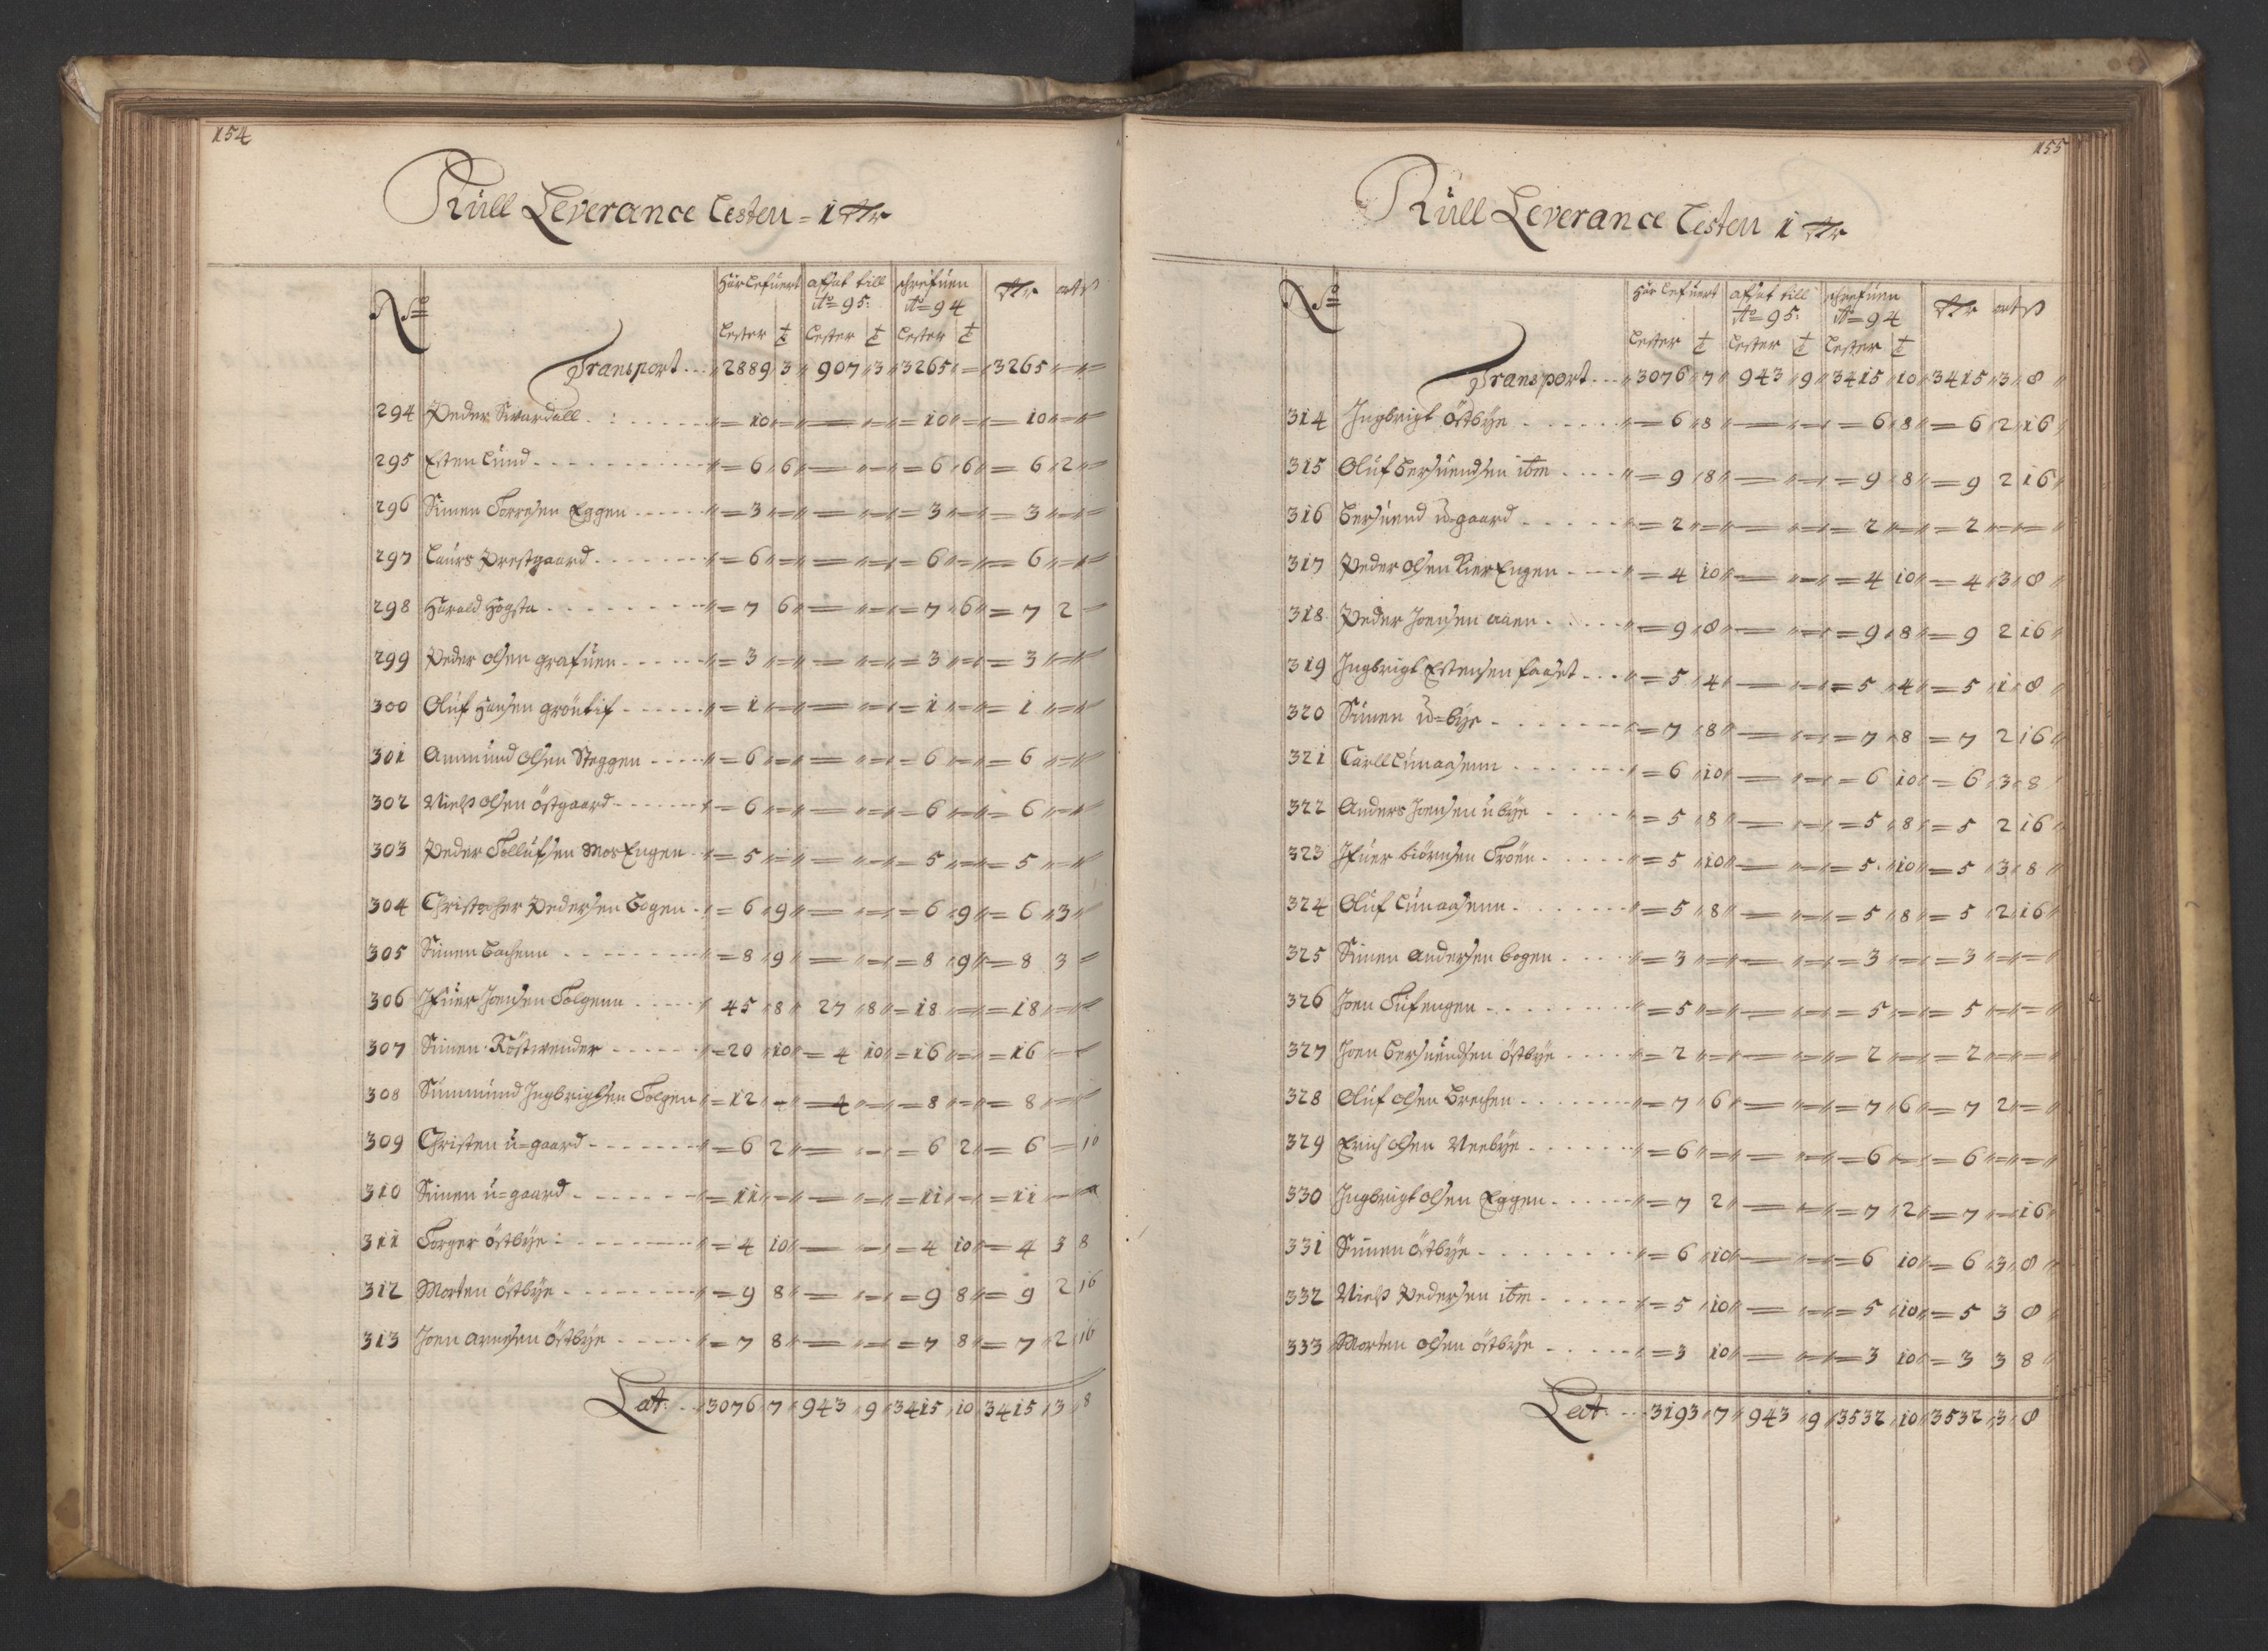 154
Kull Leverance Lesten = 1 Rdr
No
Har lefuert afsat till schrefuen Rdr ort ß
Ao 95: Ao 94
Lester t Lester t Lester t
Transport 2889 3 907 3 3265 = 3265
294 Peder Swardall 10 = = = 10 = 10
295 Esten Lund 6 6 = = 6 6 6 2
296 Simen Torresen Eggen 3 = = = 3 = 3
297 Laurs Prestgaard 6 = = = 6 = 6
298 Harald Hogsta 7 6 = = 7 6 7 2
299 Peder Olsen grafuen 3 = = = 3 = 3
300 Oluf Hansen gröntif 1 = = = 1 = 1
301 Ammund Olsen Steggen 6 = = = 6 = 6
302 Nielß Olsen Östgaard 6 = = = 6 = 6
303 Peder Tollufsen MosEngen 5 = = = 5 = 5
304 Christopher Pedersen Bogen 6 9 = = 6 9 6 3
305 Simen Bachenn 8 9 = = 8 9 8 3
306 Ifuer Joensen Tolgenn 45 8 27 8 18 = 18
307 Simen Röstwender 20 10 4 10 16 = 16
308 Summund Ingbrigtsen Tolgen 12 = 4 = 8 = 8
309 Christen ü=gaard 6 2 = = 6 2 6 = 16
310 Simen ü=gaard 11 = = = 11 = 11
311 Torger östbÿe 4 10 = = 4 10 4 3 8
312 Morten östbÿe 9 8 = = 9 8 9 2 16
313 Joen Arnesen Östbÿe 7 8 = = 7 8 7 2 16
Lat: 3076 7 943 9 3415 10 3415 3 8
155
Kull Leverance Lesten 1 Rdr
No
Har lefuert afsat till schrefuen Rdr ort ß
Ao 95: Ao 94
Lester t Lester t Lester t
Transport 3076 7 943 9 3415 10 3415 3 8
314 Ingbrigt Östbÿe 6 8 = = 6 8 6 2 16
315 Oluf Bersuendsen ibm 9 8 = = 9 8 9 2 16
316 Bersuend ü=gaard 2 = = = 2 = 2
317 Peder Olsen KierEngen 4 10 = = 4 10 4 3 8
318 Peder Joensen aaen 9 8 = = 9 8 9 2 16
319 Ingbrigt Estensen faaset 5 4 = = 5 4 5 1 8
320 Simen ü=bÿe 7 8 = = 7 8 7 2 16
321 Carll Lunaasenn 6 10 = = 6 10 6 3 8
322 Anders Joensen ü bÿe 5 8 = = 5 8 5 2 16
323 Ifuer biörnsen Troën 5 10 = = 5 10 5 3 8
324 Oluf Lunaasenn 5 8 = = 5 8 5 2 16
325 Simen Andersen bogen 3 = = = 3 = 3
326 Joen Tufengen 5 = = = 5 = 5
327 Joen Bersuendsen östbÿe 2 = = = 2 = 2
328 Oluf Olsen Brechen 7 6 = = 7 6 7 2
329 Erich Olsen Neebÿe 6 = = = 6 = 6
330 Ingbrigt Olsen Eggen 7 2 = = 7 2 7 = 16
331 Simen östbÿe 6 10 = = 6 10 6 3 8
332 Nielß Pedersen ibm 5 10 = = 5 10 5 3 8
333 Morten Olsen östbÿe 3 10 = = 3 10 3 3 8
Lat: 3193 7 943 9 3532 10 3532 3 8